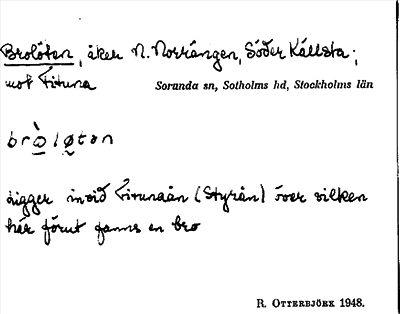 Brolötan, åker N. Norrängen, Söder Källsta;
mot Fituna
Sorunda sn, Sotholms hd, Stockholms län
brò̱løtan
Ligger invid Fitunaån (Styrån) över vilken
här förut fanns en bro
R. OTTERBJÖRK 1948.